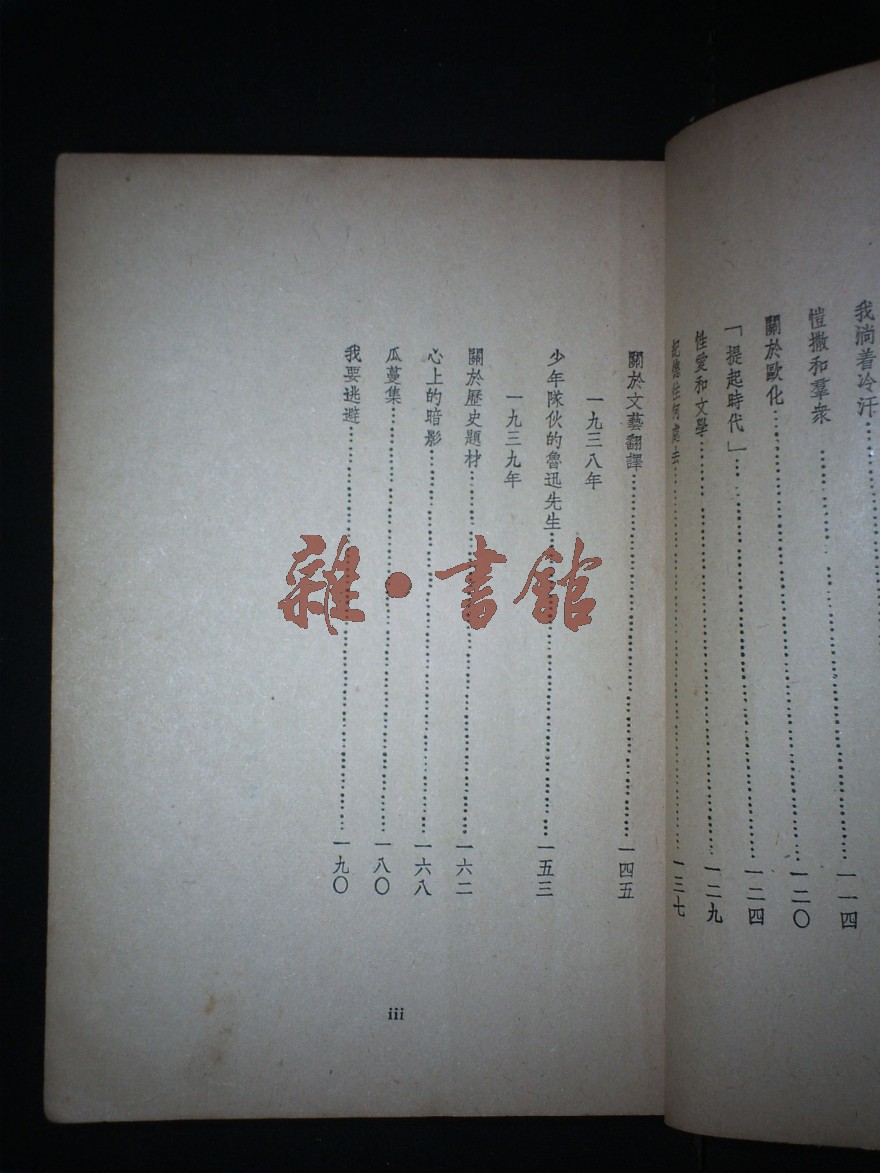 我淌着冷汗……一一四
愷撒和羣衆……一二〇
關於歐化……一二四
「提起時代」……一二九
性愛和文學……一三七
關於文藝翻譯……一四五
一九三八年
少年隊伙的魯迅先生……一五三
一九三九年
關於歷史題材……一六二
心上的暗影……一六八
瓜蔓集……一八〇
我要逃避……一九〇
iii
雜·書館